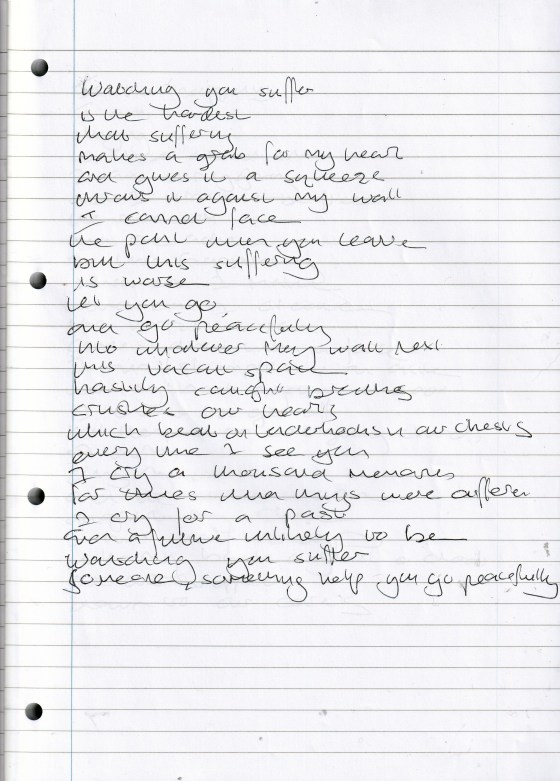 Watching you suffer
is the hardest
that suffering
makes a grab for my heart
and gives it a squeeze
throws it against my wall
I cannot face
the part when you leave
but this suffering
is worse
let you go
and go peacefully
into whatever they wall next
this vacant space
hastily caught breaths
crushes our hearts
which beat on in our chests
every time I see you
I cry a thousand memories
for times when things were different
I cry for a past
and a future unlikely to be
watching you suffer
someone, something help you go peacefully